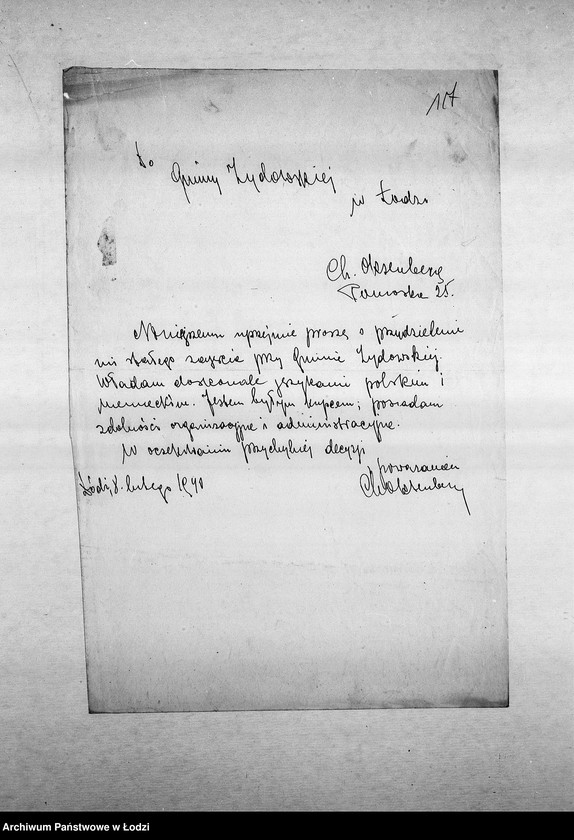 117
Do
Gminy Żydowskiej
w Łodzi
Ch. Oksenberg
Pomorska 25.
Niniejszem uprzejmie proszę o przydzielenie
mi stałego zajęcia przy Gminie Żydowskiej.
Władam doskonale językami polskim i
niemieckim. Jestem byłym kupcem; posiadam
zdolności organizacyjne i administracyjne.
W oczekiwaniu przychylnej decyzji
z poważaniem
Łódź, 8. lutego 1940
Ch Oksenberg
Archiwum Państwowe w Łodzi